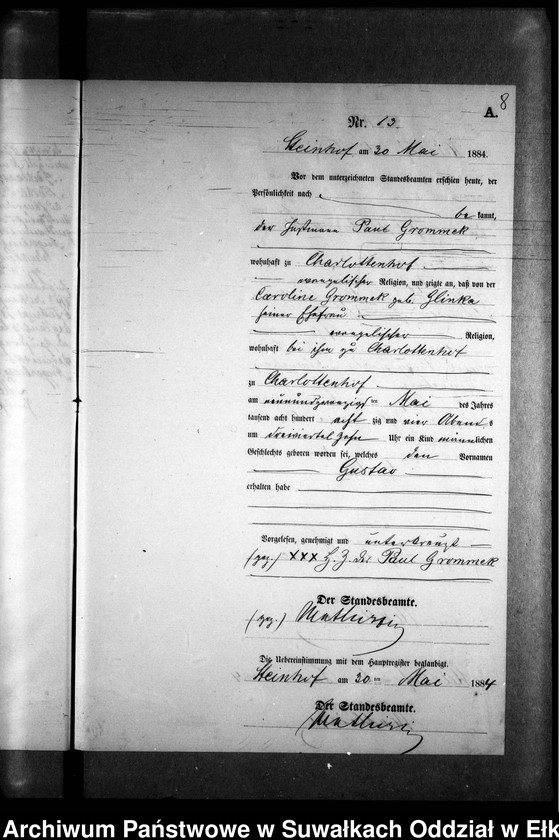 8
A.
Nr. 13
Steinhof am 30 Mai 1884.
Vor dem unterzeichneten Standesbeamten erschien heute, der
Persönlichkeit nach
be kannt,
der Instmann Paul Grommek
wohnhaft zu Charlottenhof
evangelischer Religion, und zeigte an, daß von der
Caroline Grommek geb. Glinka
seiner Ehefrau
evangelischer Religion,
wohnhaft bei ihm zu Charlottenhof
zu Charlottenhof
am neunundzwanzigsten Mai des Jahres
tausend acht hundert acht zig und vier Abend s
um dreiviertel zehn Uhr ein Kind männlichen
Geschlechts geboren worden sei, welches den Vornamen
Gustav
erhalten habe
Vorgelesen, genehmigt und unterkreuzt
(gez.) XXX H. Z. des Paul Grommek
Der Standesbeamte.
(gez.)
Die Uebereinstimmung mit dem Hauptregister beglaubigt.
Steinhof am 30ten Mai 1884
Der Standesbeamte.
Archiwum Państwowe w Suwałkach Oddział w Ełk